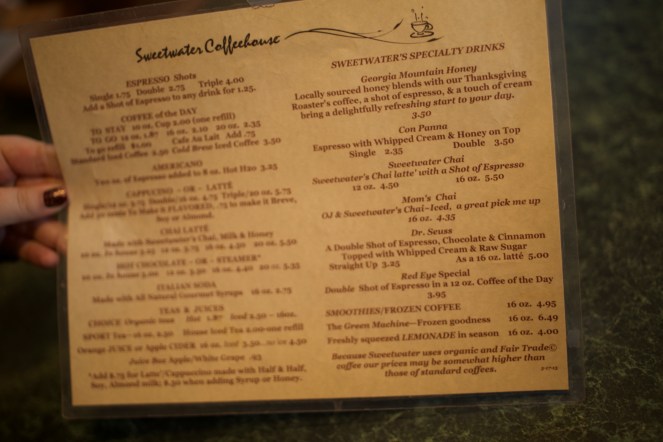 Sweetwater Coffeehouse
ESPRESSO Shots
Single 1.75 Double 2.75 Triple 4.00
Add a Shot of Espresso to any drink for 1.25.
COFFEE of the DAY
TO STAY 10 oz. Cup 2.00 (one refill)
TO GO 12 oz. 1.87 16 oz. 2.10 20 oz. 2.35
To go refill $1.00 Cafe Au Lait Add .75
Standard Iced Coffee 2.50 Cold Brew Iced Coffee 3.50
AMERICANO
Two oz. of Espresso added to 8 oz. Hot H20 3.25
CAPPUCINO – OR – LATTÉ
Soy or Almond.
CHAI LATTÉ
Made with Sweetwater's Chai, Milk & Honey
HOT CHOCOLATE – OR – STEAMER*
ITALIAN SODA
Made with All Natural Gourmet Syrups 16 oz. 2.75
TEAS & JUICES
Juice Box Apple/White Grape .93
*Add $.75 for Latte'/Cappuccino made with Half & Half,
Soy, Almond milk; $.50 when adding Syrup or Honey.
SWEETWATER'S SPECIALTY DRINKS
Georgia Mountain Honey
Locally sourced honey blends with our Thanksgiving
Roaster's coffee, a shot of espresso, & a touch of cream
bring a delightfully refreshing start to your day.
3.50
Con Panna
Espresso with Whipped Cream & Honey on Top
Single 2.35 Double 3.50
Sweetwater Chai
Sweetwater's Chai latte' with a Shot of Espresso
12 oz. 4.50 16 oz. 5.50
Mom's Chai
OJ & Sweetwater's Chai–Iced, a great pick me up
16 oz. 4.35
Dr. Seuss
A Double Shot of Espresso, Chocolate & Cinnamon
Topped with Whipped Cream & Raw Sugar
Straight Up 3.25 As a 16 oz. latté 5.00
Red Eye Special
Double Shot of Espresso in a 12 oz. Coffee of the Day
3.95
SMOOTHIES/FROZEN COFFEE 16 oz. 4.95
The Green Machine—Frozen goodness 16 oz. 6.49
Freshly squeezed LEMONADE in season 16 oz. 4.00
Because Sweetwater uses organic and Fair Trade©
coffee our prices may be somewhat higher than
those of standard coffees.